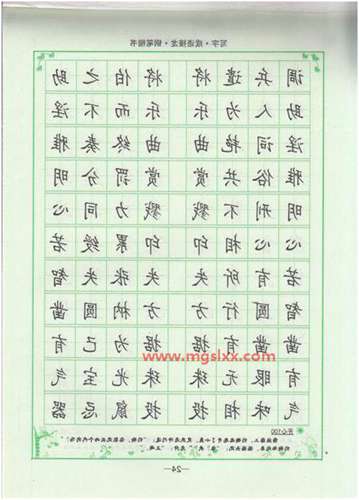 写字·成语接龙·钢笔楷书
调兵遣将 将伯之助
助人为乐 乐而不淫
淫词艳曲 曲终奏雅
雅俗共赏 赏罚分明
明刑不戮 戮力同心
心心相印 印累绶若
若有所失 失张失智
智圆行方 方枘圆凿
凿凿有据 据为己有
www.mgslxx.com
有眼无珠 珠光宝气
气味相投 投鼠忌器
开心100
—24—